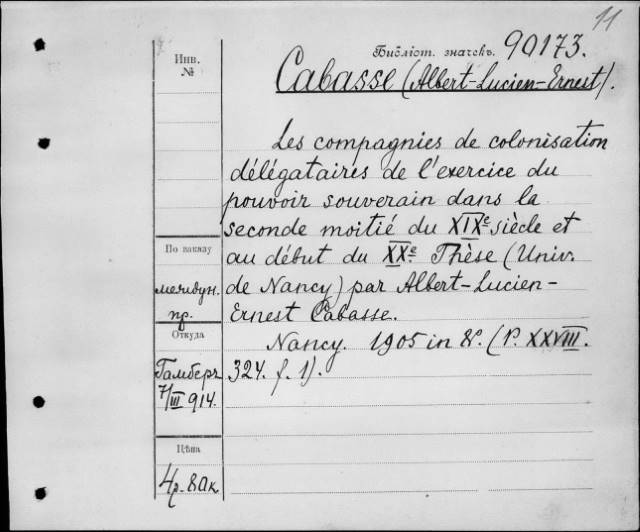 11
Инв.
№
Библіот. значекъ. 90173.
Cabasse (Albert-Lucien-Ernest).
Les compagnies de colonisation
délégataires de l'exercice du
pouvoir souverain dans la
seconde moitié du XIXe siècle et
au début du XXe. Thèse (Univ.
de Nancy) par Albert-Lucien-
Ernest Cabasse.
Nancy. 1905 in 8º. (P. XXVIII.
324. f. 1).
По заказу
междун.
пр.
Откуда
Гамберъ
7/III 914.
Цѣна
4р. 80к